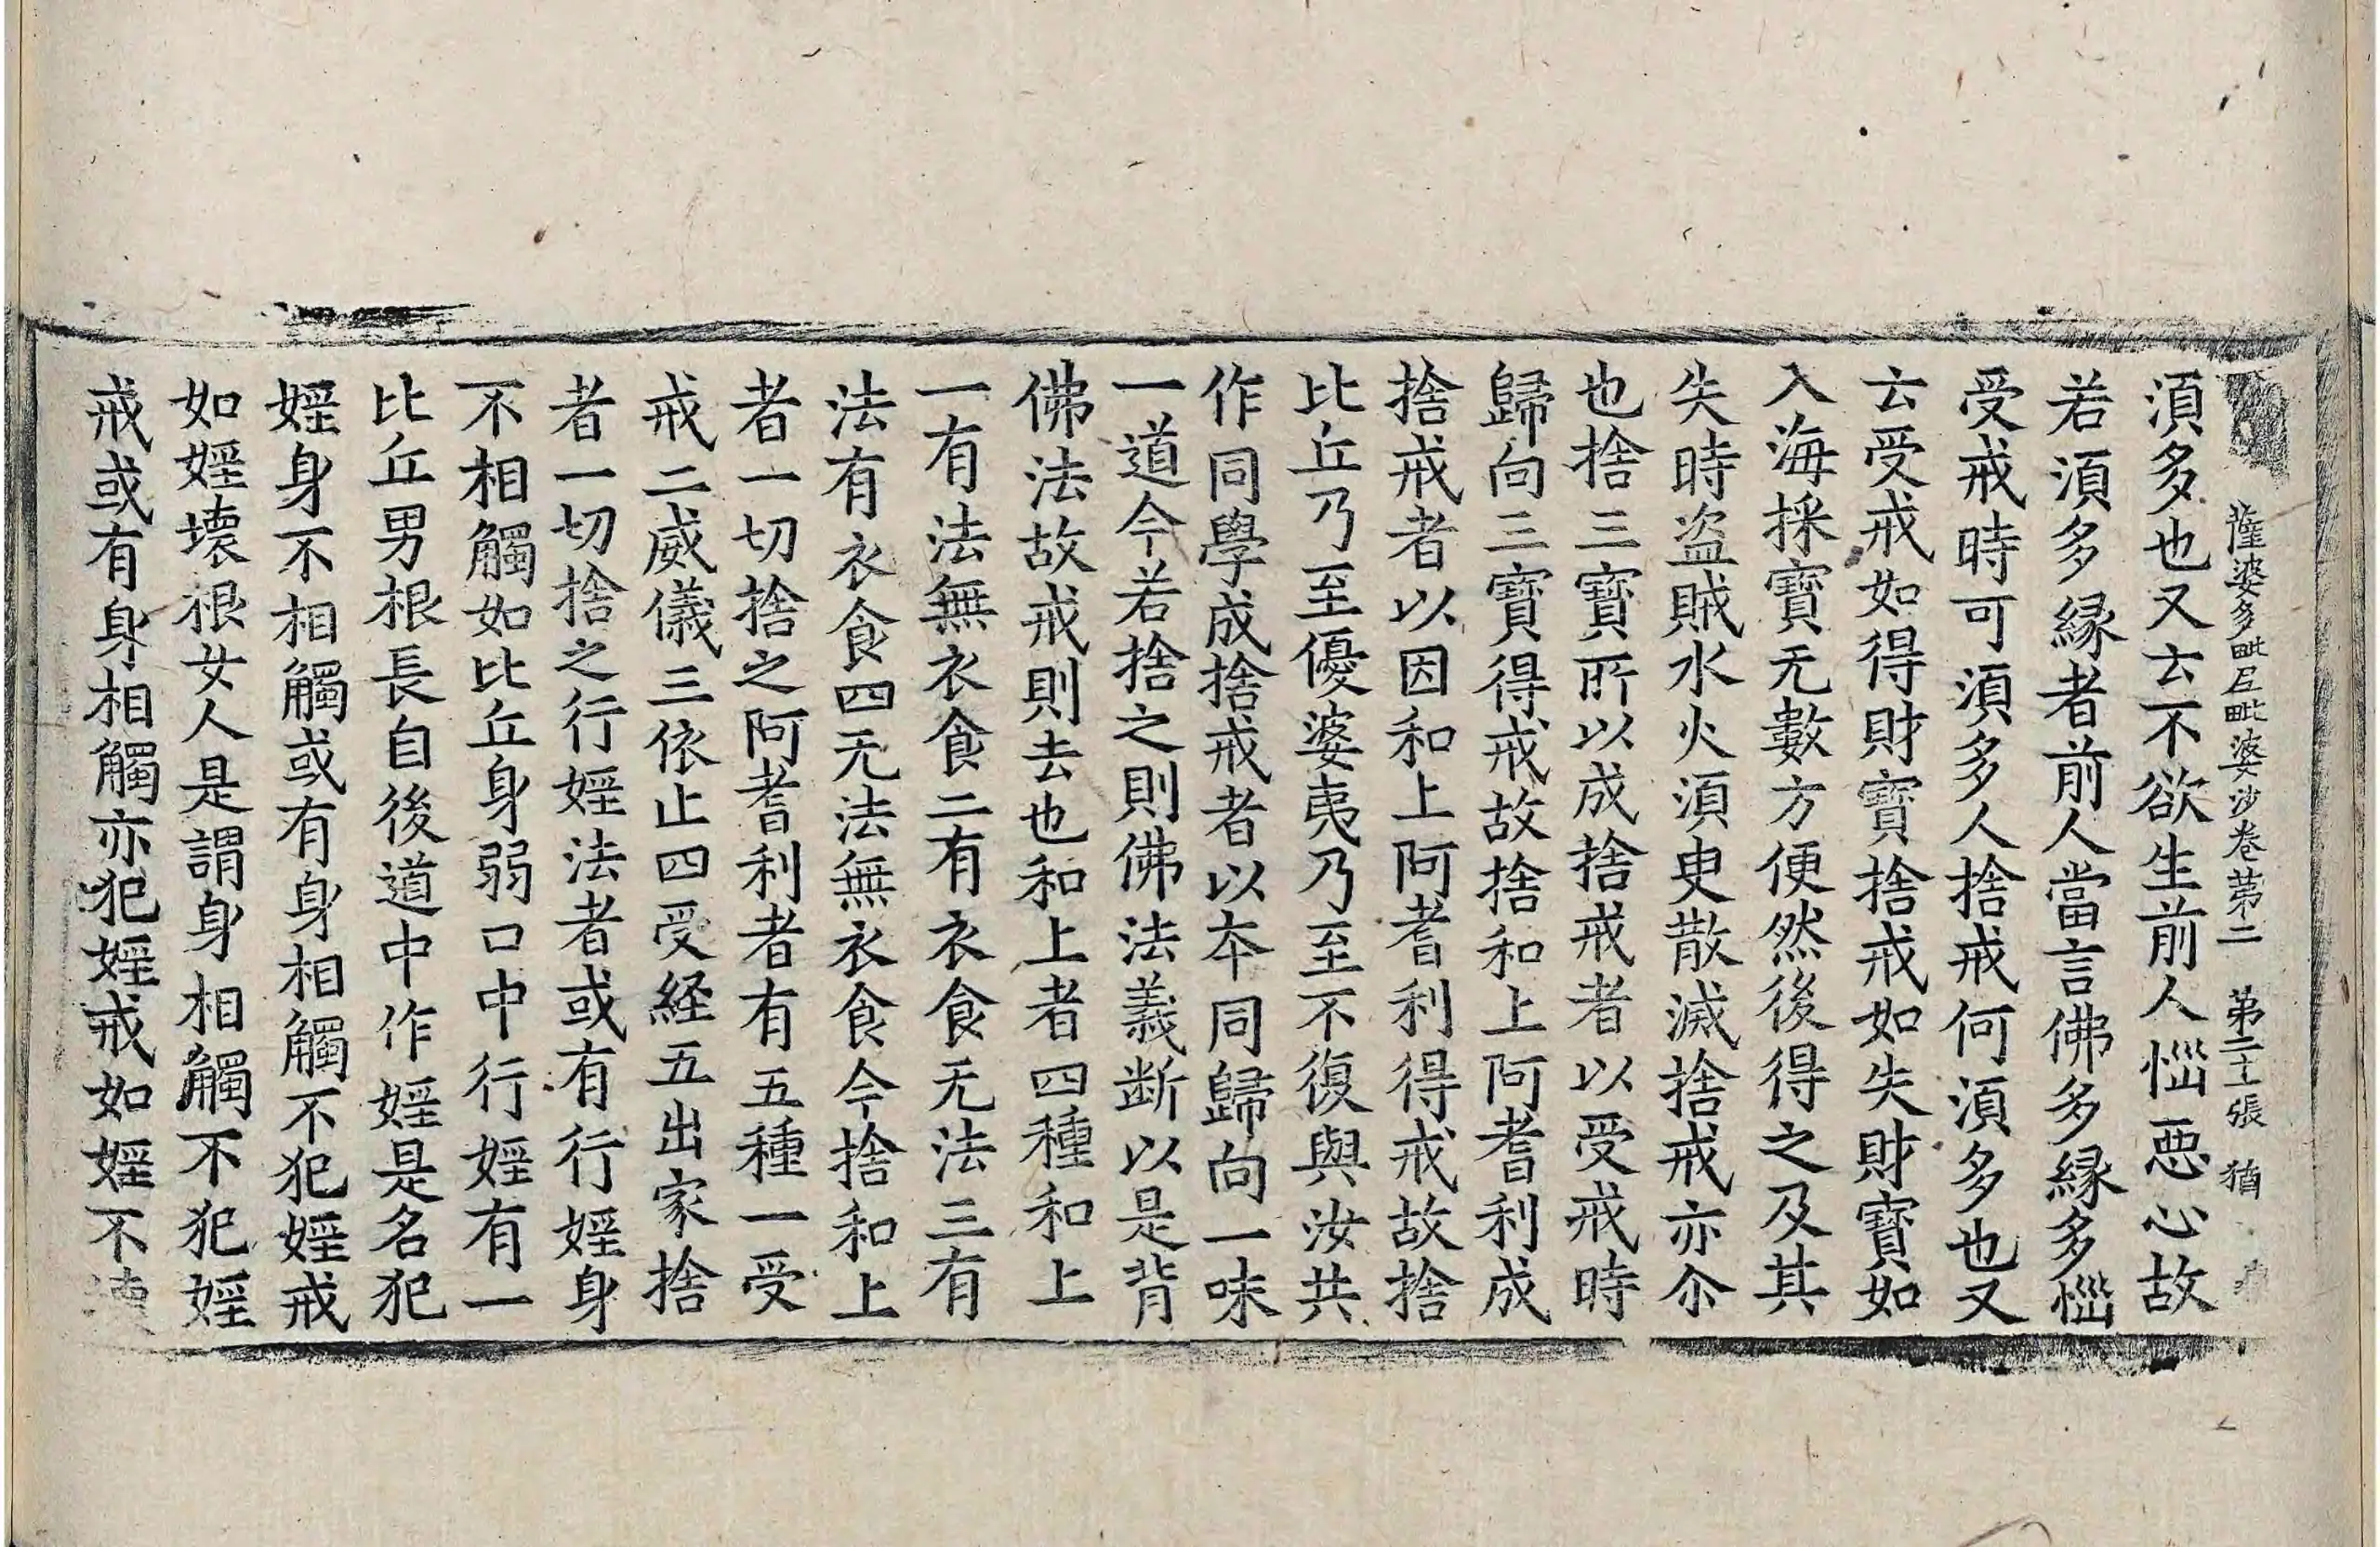 薩婆多毗尼毗婆沙卷苐二 苐二十張 猶
湏多也又云不欲生前人惱惡心故
若湏多緣者前人當言佛多緣多惱
受戒時可湏多人捨戒何湏多也又
云受戒如得財寶捨戒如失財寶如
入海採寶无數方便然後得之及其
失時盜賊水火湏臾散滅捨戒亦尒
也捨三寶所以成捨戒者以受戒時
歸向三寶得戒故捨和上阿耆利成
捨戒者以因和上阿耆利得戒故捨
比丘乃至優婆夷乃至不復與汝共
作同學成捨戒者以夲同歸向一味
一道今若捨之則佛法義断以是背
佛法故戒則去也和上者四種和上
一有法無衣食二有衣食无法三有
法有衣食四无法無衣食今捨和上
者一切捨之阿耆利者有五種一受
戒二威儀三依止四受経五出家捨
者一切捨之行婬法者或有行婬身
不相觸如比丘身弱口中行婬有一
比丘男根長自後道中作婬是名犯
婬身不相觸或有身相觸不犯婬戒
如婬壞根女人是謂身相觸不犯婬
戒或有身相觸亦犯婬戒如婬不壞